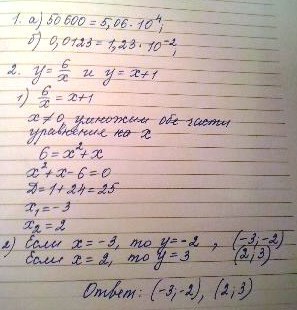 1. а) 50600 = 5,06 · 10⁴;
б) 0,0123 = 1,23 · 10⁻²;
2. y = 6/x и y = x+1
1) 6/x = x+1
x ≠ 0, умножим обе части
уравнения на x
6 = x² + x
x² + x - 6 = 0
D = 1 + 24 = 25
x₁ = -3
x₂ = 2
2) Если x = -3, то y = -2 , (-3; -2)
Если x = 2, то y = 3 (2; 3)
Ответ: (-3; -2), (2; 3)